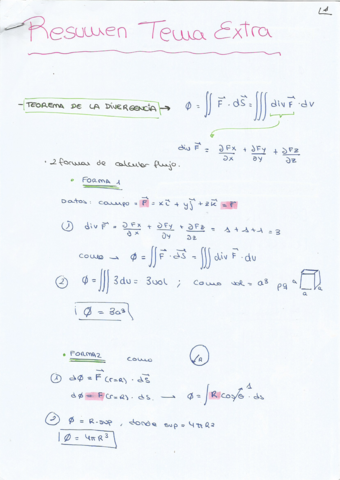 1
Resumen Tema Extra
- TEOREMA DE LA DIVERGENCIA → φ = ∬ F⃗ · dS⃗ = ∭ div F⃗ · dv
div F⃗ = ∂Fx/∂x + ∂Fy/∂y + ∂Fz/∂z
· 2 formas de calcular flujo.
• FORMA 1
Datos: campo = F⃗ = xi⃗ + yj⃗ + zk⃗ = r⃗
1) div F⃗ = ∂Fx/∂x + ∂Fy/∂y + ∂Fz/∂z = 1 + 1 + 1 = 3
como → φ = ∬ F⃗ · dS⃗ = ∭ div F⃗ · dv
2) φ = ∭ 3dv = 3vol ; como vol = a³ pq a a a
φ = 3a³
• FORMA 2 como R
1) dφ = F⃗ (r=R) · dS⃗
dφ = F (r=R) · dS. → φ = ∫ R cos θ 1 · ds
2) φ = R · sup, donde sup = 4πR²
φ = 4πR³